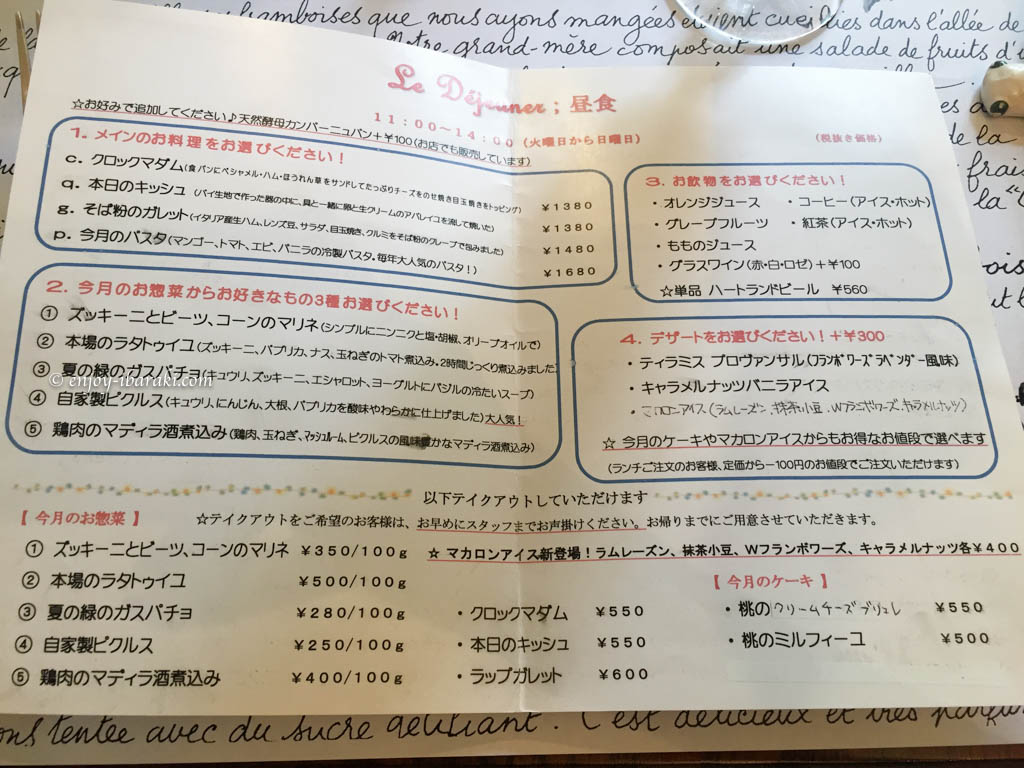 framboises que nous ayons mangées étaient cueillies dans l'allée de
Notre grand-mère composait une salade de fruits d'
Le Déjeuner ; 昼食
11:00~14:00 (火曜日から日曜日)
(税抜き価格)
☆お好みで追加してください♪天然酵母カンパーニュパン+¥100(お店でも販売しています)
1. メインのお料理をお選びください!
c. クロックマダム(食パンにベシャメル・ハム・ほうれん草をサンドしてたっぷりチーズをのせ焼き目玉焼きをトッピング) ¥1380
q. 本日のキッシュ (パイ生地で作った器の中に、具と一緒に卵と生クリームのアパレイユを流して焼いた) ¥1380
g. そば粉のガレット(イタリア産生ハム、レンズ豆、サラダ、目玉焼き、クルミをそば粉のクレープで包みました) ¥1480
p. 今月のパスタ(マンゴー、トマト、エビ、バニラの冷製パスタ。毎年大人気のパスタ!) ¥1680
2. 今月のお惣菜からお好きなもの3種お選びください!
① ズッキーニとビーツ、コーンのマリネ(シンプルにニンニクと塩・胡椒、オリーブオイルで)
② 本場のラタトゥイユ(ズッキーニ、パプリカ、ナス、玉ねぎのトマト煮込み。2時間じっくり煮込みました)
③ 夏の緑のガスパチョ(キュウリ、ズッキーニ、エシャロット、ヨーグルトにバジルの冷たいスープ)
④ 自家製ピクルス(キュウリ、にんじん、大根、パプリカを酸味やわらかに仕上げました)大人気!
⑤ 鶏肉のマディラ酒煮込み(鶏肉、玉ねぎ、マッシュルーム、ピクルスの風味豊かなマディラ酒煮込み)
© enjoy-ibaraki.com
3. お飲物をお選びください!
・オレンジジュース ・コーヒー(アイス・ホット)
・グレープフルーツ 紅茶(アイス・ホット)
・もものジュース
・グラスワイン(赤・白・ロゼ)+¥100
☆単品 ハートランドビール ¥560
4. デザートをお選びください!+¥300
・ティラミス プロヴァンサル(フランボワーズラベンダー風味)
・キャラメルナッツバニラアイス
・マカロンアイス(ラムレーズン 抹茶小豆 Wフランボワーズ キャラメルナッツ)
☆ 今月のケーキやマカロンアイスからもお得なお値段で選べます
(ランチご注文のお客様、定価から-100円のお値段でご注文いただけます)
以下テイクアウトしていただけます
【 今月のお惣菜 】 ☆テイクアウトをご希望のお客様は、お早めにスタッフまでお声掛けください。お帰りまでにご用意させていただきます。
① ズッキーニとビーツ、コーンのマリネ ¥350/100g
② 本場のラタトゥイユ ¥500/100g
③ 夏の緑のガスパチョ ¥280/100g
④ 自家製ピクルス ¥250/100g
⑤ 鶏肉のマディラ酒煮込み ¥400/100g
☆ マカロンアイス新登場!ラムレーズン、抹茶小豆、Wフランボワーズ、キャラメルナッツ各¥400
・クロックマダム ¥550
・本日のキッシュ ¥550
・ラップガレット ¥600
【 今月のケーキ 】
・桃のクリームチーズブリュレ ¥550
・桃のミルフィーユ ¥500
tentée avec du sucre gélifiant. C'est délicieux et très